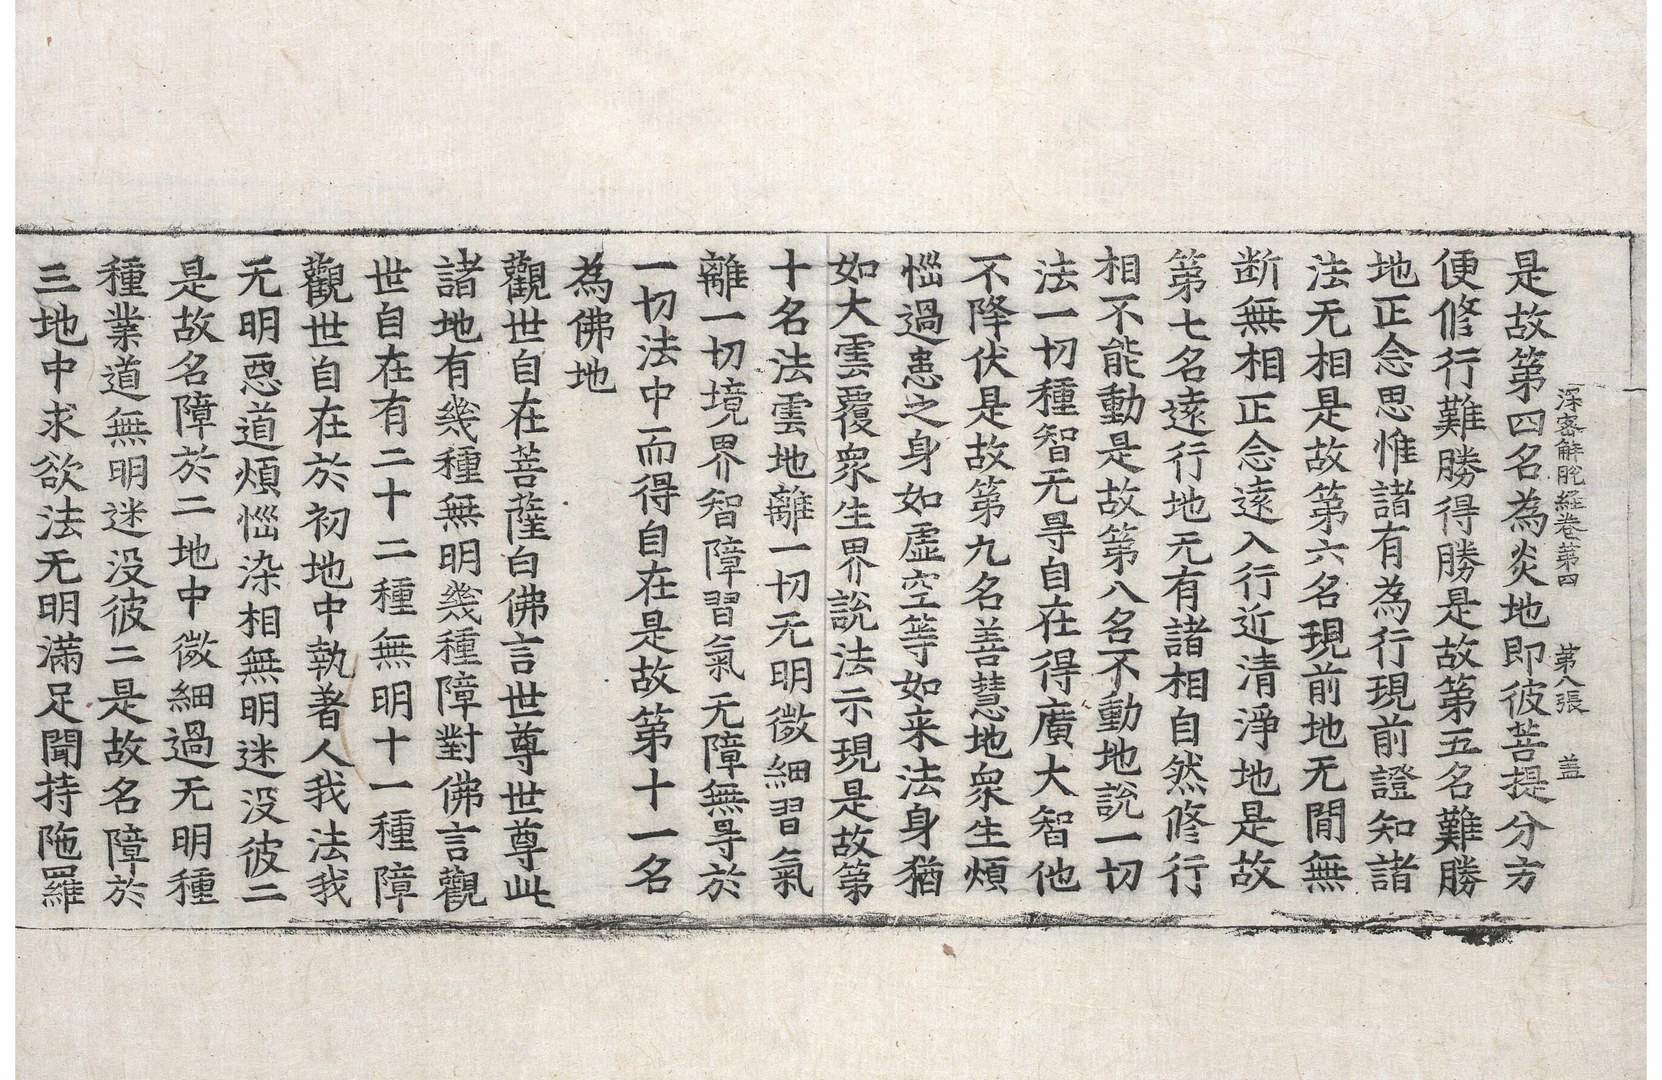 深密解脫經卷第四 第八張 盖
是故第四名為炎地即彼菩提分方
便修行難勝得勝是故第五名難勝
地正念思惟諸有為行現前證知諸
法无相是故第六名現前地无閒無
断無相正念遠入行近清淨地是故
第七名遠行地无有諸相自然修行
相不能動是故第八名不動地說一切
法一切種智无㝵自在得廣大智他
不降伏是故第九名善慧地衆生煩
惱過患之身如虛空等如来法身猶
如大雲覆衆生界說法示現是故第
十名法雲地離一切无明微細習氣
離一切境界智障習氣无障無㝵於
一切法中而得自在是故第十一名
為佛地
觀世自在菩薩白佛言世尊世尊此
諸地有幾種無明幾種障對佛言觀
世自在有二十二種無明十一種障
觀世自在於初地中執著人我法我
无明惡道煩惱染相無明迷没彼二
是故名障於二地中微細過无明種
種業道無明迷没彼二是故名障於
三地中求欲法无明滿足聞持陁羅